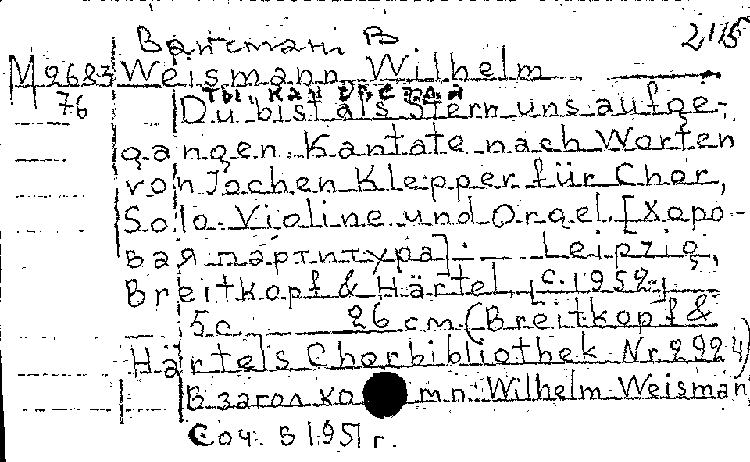 Вайсман В 2115
М 2683 Weismann, Wilhelm
76 Du bist als Stern uns aufge-
gangen. Kantate nach Worten
von Jochen Klepper für Chor,
Solo-Violine und Orgel. [Хоро-
вая партитура]. Leipzig,
Breitkopf & Härtel, [c. 1952].
5 с. 26 cm. (Breitkopf &
Härtels Chorbibliothek Nr 2924)
В загол. комп.: Wilhelm Weisman
Соч. в 1951 г.